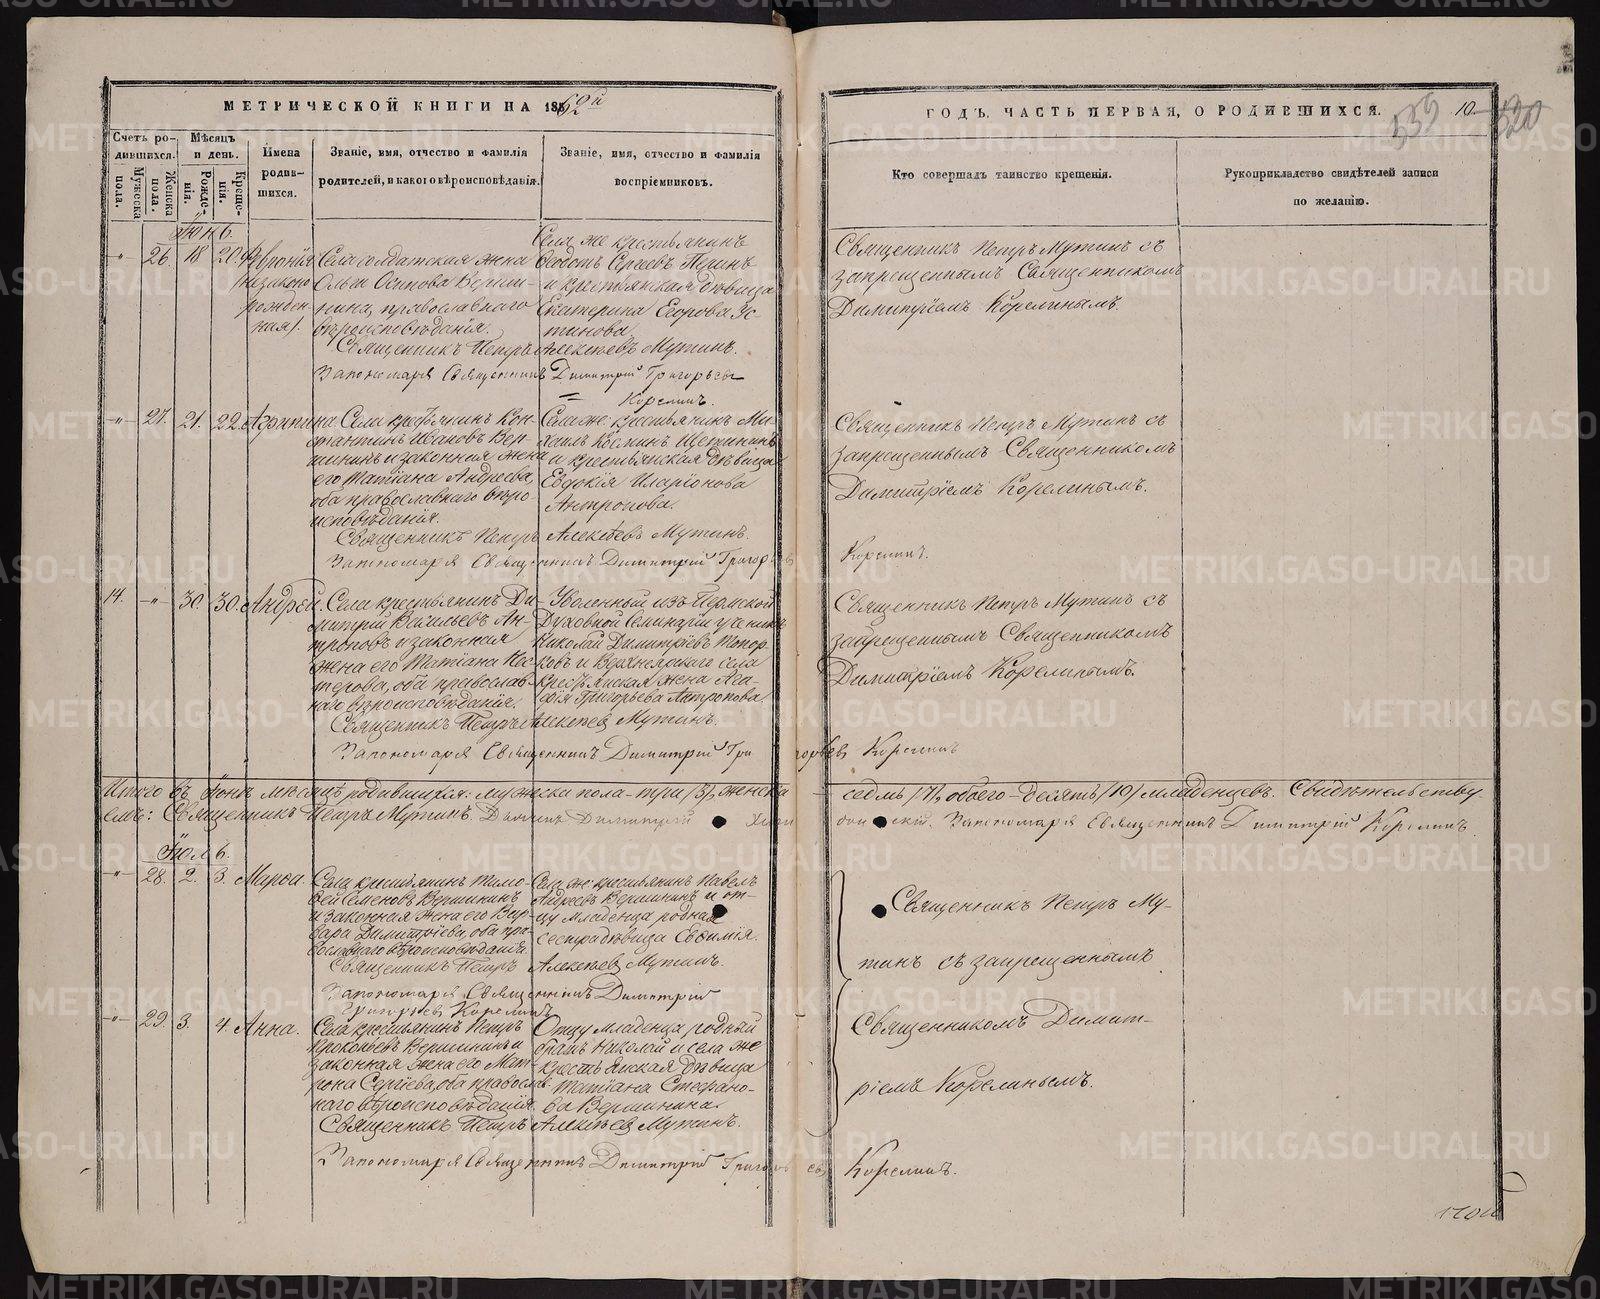 МЕТРИЧЕСКОЙ КНИГИ НА 1862й
ГОДЪ. ЧАСТЬ ПЕРВАЯ, О РОДИВШИХСЯ.
10
539
520
Счетъ ро-
дившихся.
Мужеска
пола.
Женска
пола.
Мѣсяцъ
и день.
Рожде-
нія.
Креще-
нія.
Имена
родив-
шихся.
Званіе, имя, отчество и фамилія
родителей, и какого вѣроисповѣданія.
Званіе, имя, отчество и фамилія
воспріемниковъ.
Кто совершалъ таинство крещенія.
Рукоприкладство свидѣтелей записи
по желанію.
Іюнь.
26. 18 20.
незаконо
рожден
ная/.
Села солдатская жена
Ольга Осипова Верши-
нина, православнаго
вѣроисповѣданія.
Села же крестьянинъ
Ѳедотъ Сергѣевъ
и крестьянская дѣвица
Екатерина Егорова Ус
тинова
Священникъ Петръ Алексѣевъ Мутинъ.
Запономаря Священникъ Димитрій Григорьевъ
Корелинъ.
Священникъ Петръ Мутинъ съ
запрещеннымъ Священникомъ
Димитріемъ Корелинымъ.
27. 21. 22. Агрипина.
Села крестьянинъ Кон-
стантинъ Ивановъ Вер-
шининъ и законная жена
его Татіана Андреева,
оба православнаго вѣро-
исповѣданія.
Села же крестьянинъ Ми-
хаилъ Козминъ Щетининъ
и крестьянская дѣвица
Евдокія Иларіонова
Антропова.
Священникъ Петръ Алексѣевъ Мутинъ.
Запономаря Священникъ Димитрій Григорьевъ
Корелинъ.
Священникъ Петръ Мутинъ съ
запрещеннымъ Священникомъ
Димитріемъ Корелинымъ.
14. 30. 30. Андрей.
Села крестьянинъ Ди-
митрій Васильевъ Ан-
троповъ и законная
жена его Татіана Нес-
терова, оба православ-
наго вѣроисповѣданія.
Уволенный изъ Пермской
Духовной Семинаріи ученикъ
Николай Димитріевъ Топор-
ковъ и Верхнеярскаго села
крестьянская жена Ага-
фія Григорьева Антропова.
Священникъ Петръ Алексѣевъ Мутинъ.
Запономаря Священникъ Димитрій Григорьевъ Корелинъ
Священникъ Петръ Мутинъ съ
запрещеннымъ Священникомъ
Димитріемъ Корелинымъ.
Итого въ Іюнѣ мѣсяцѣ родившихся: мужеска пола-три /3/, женска
седмь /7/, обоего-десять /10/ младенцевъ. Свидѣтельству-
емъ: Священникъ Петръ Мутинъ. Запономаря Священникъ Димитрій Корелинъ.
Іюль.
28. 2. 3. Марѳа.
Села крестьянинъ Тимо-
ѳей Семеновъ Вершининъ
и законная жена его Вар-
вара Димитріева, оба пра-
вославнаго вѣроисповѣданія.
Села же крестьянинъ Павелъ
Андреевъ Вершининъ и от-
цу младенца родная
сестра дѣвица Евѳимія.
Священникъ Петръ Алексѣевъ Мутинъ.
Запономаря Священникъ Димитрій
Григорьевъ Корелинъ
Священникъ Петръ Му-
тинъ съ запрещеннымъ
29. 3. 4. Анна.
Села крестьянинъ Петръ
Прокопьевъ Вершининъ и
законная жена его Мат-
рона Сергіева, оба православ-
наго вѣроисповѣданія.
Отцу младенца родный
братъ Николай и села же
крестьянская дѣвица
Татіана Стефано-
ва Вершинина.
Священникъ Петръ Алексѣевъ Мутинъ.
Запономаря Священникъ Димитрій Григорьевъ Корелинъ.
Священникомъ Димит-
ріемъ Корелинымъ.
METRIKI.GASO-URAL.RU